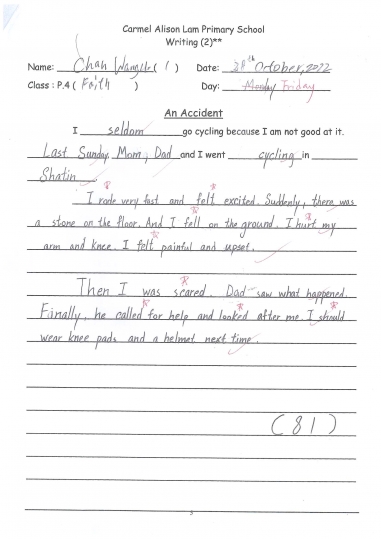 Carmel Alison Lam Primary School
Writing (2)**
Name: Chan ( 1 ) Date: 28th October, 2022
Class : P.4 ( Faith ) Day: Monday Friday
An Accident
I seldom go cycling because I am not good at it.
Last Sunday, Mom, Dad and I went cycling in
Shatin .
I rode very fast and felt excited. Suddenly, there was
a stone on the floor. And I fell on the ground. I hurt my
arm and knee. I felt painful and upset.
Then I was scared. Dad saw what happened.
Finally, he called for help and looked after me. I should
wear knee pads and a helmet next time.
(81)